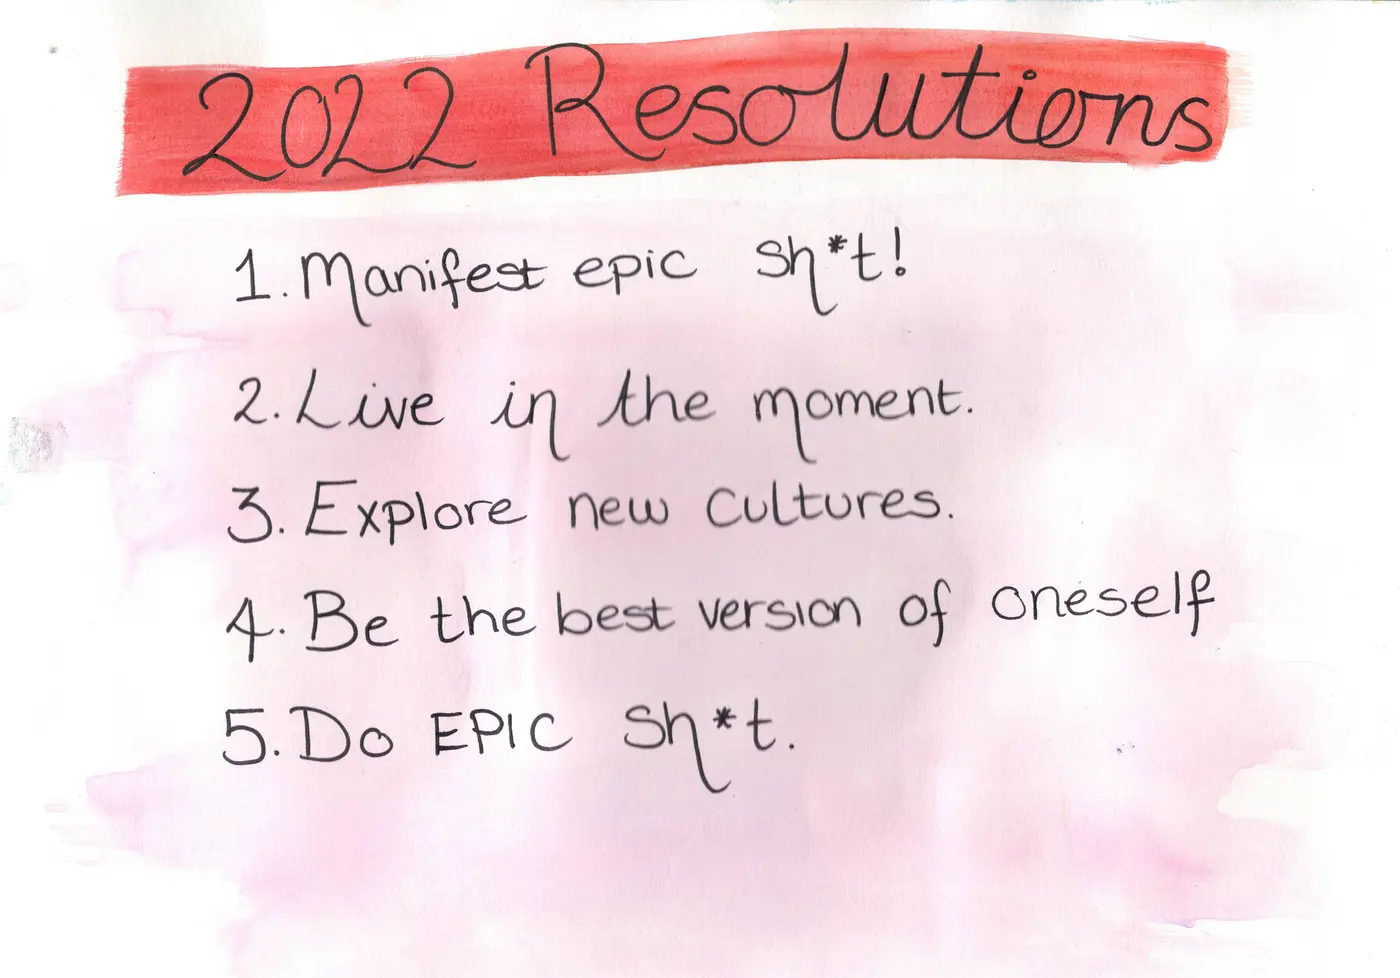 2022 Resolutions
1. Manifest epic sh*t!
2. Live in the moment.
3. Explore new cultures.
4. Be the best version of oneself
5. Do EPIC Sh*t.